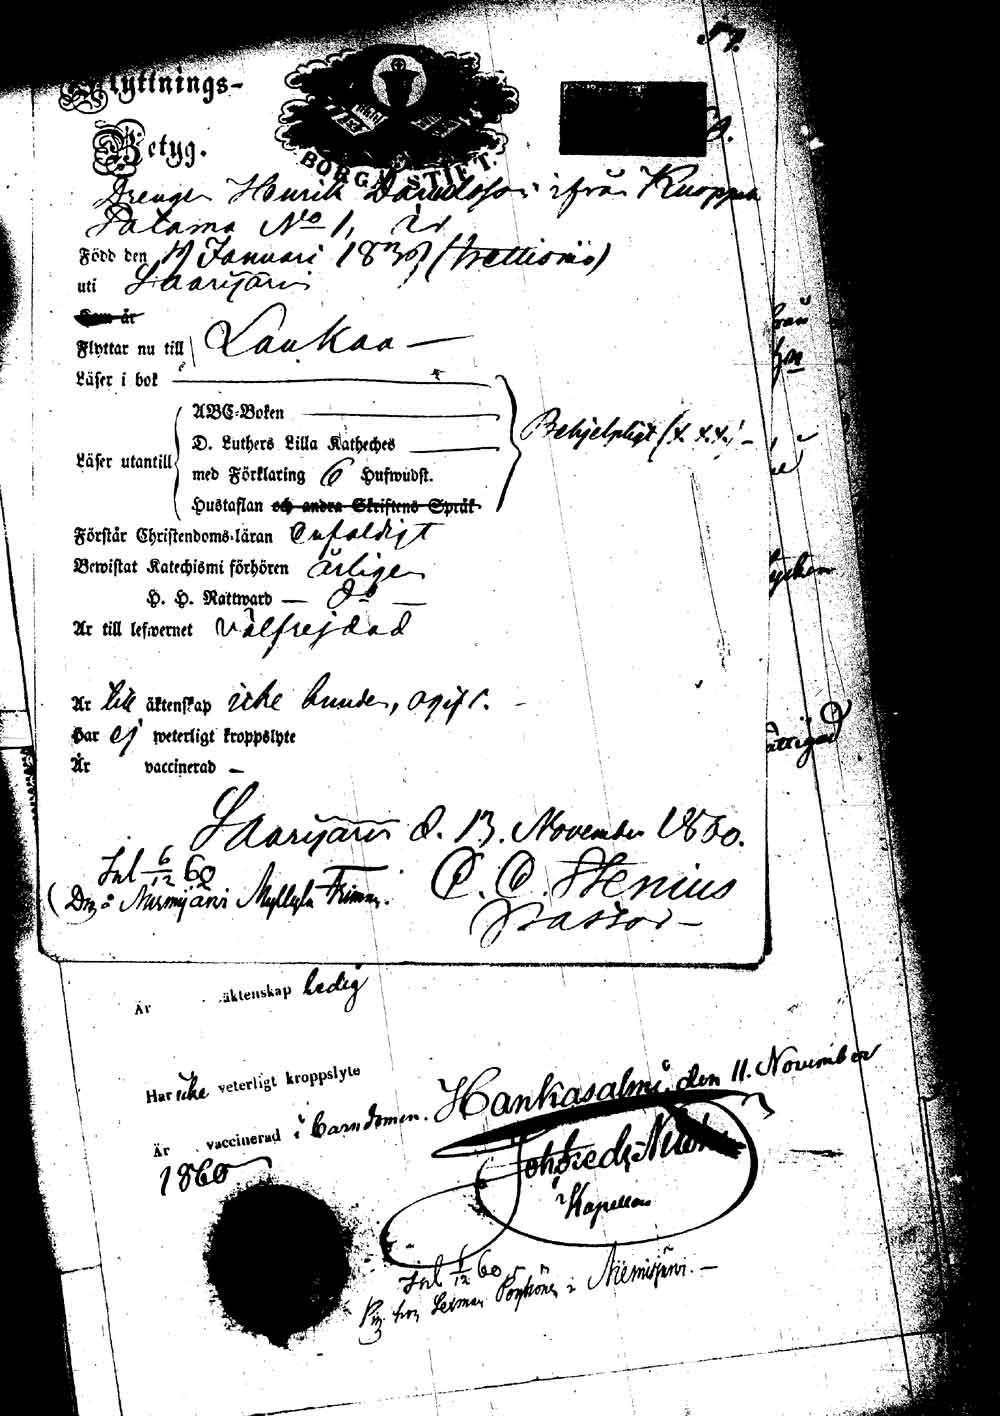 57.
Flyttnings-
Betyg.
BORGÅ STIFT.
Drengen Henrik Davidsson ifrån Knoppen
Palama No 1, är
Född den Januari (trettionio)
uti Saarijärvi
Som är
Flyttar nu till Laukaa —
Läser i bok
Läser utantill
ABC-Boken
D. Luthers Lilla Katheches
med Förklaring 6 Hufwudst.
Hustaflan och andra Skriftens Språk
Behjelpligt (x. x.x.) -
Förstår Christendoms-läran Enfaldigt
Bewistat Katechismi förhören årligen
H. H. Nattward — do —
Är till lefwernet välfrejdad
Är till äktenskap icke bunden, ogift. -
Har ej weterligt kroppslyte
Är vaccinerad —
Saarijärvi d. 13. November 1860.
Inl 6/12 60
C. C. Stenius
Pastor —
Niemijärvi Myllylä
Är äktenskap ledig
Har icke veterligt kroppslyte
Är vaccinerad i barndomen. Hankasalmi, den 11. November
1860
Joh Fredr
Kapellan
Inl 1/12 60
Pig. hos i Niemijärvi. —